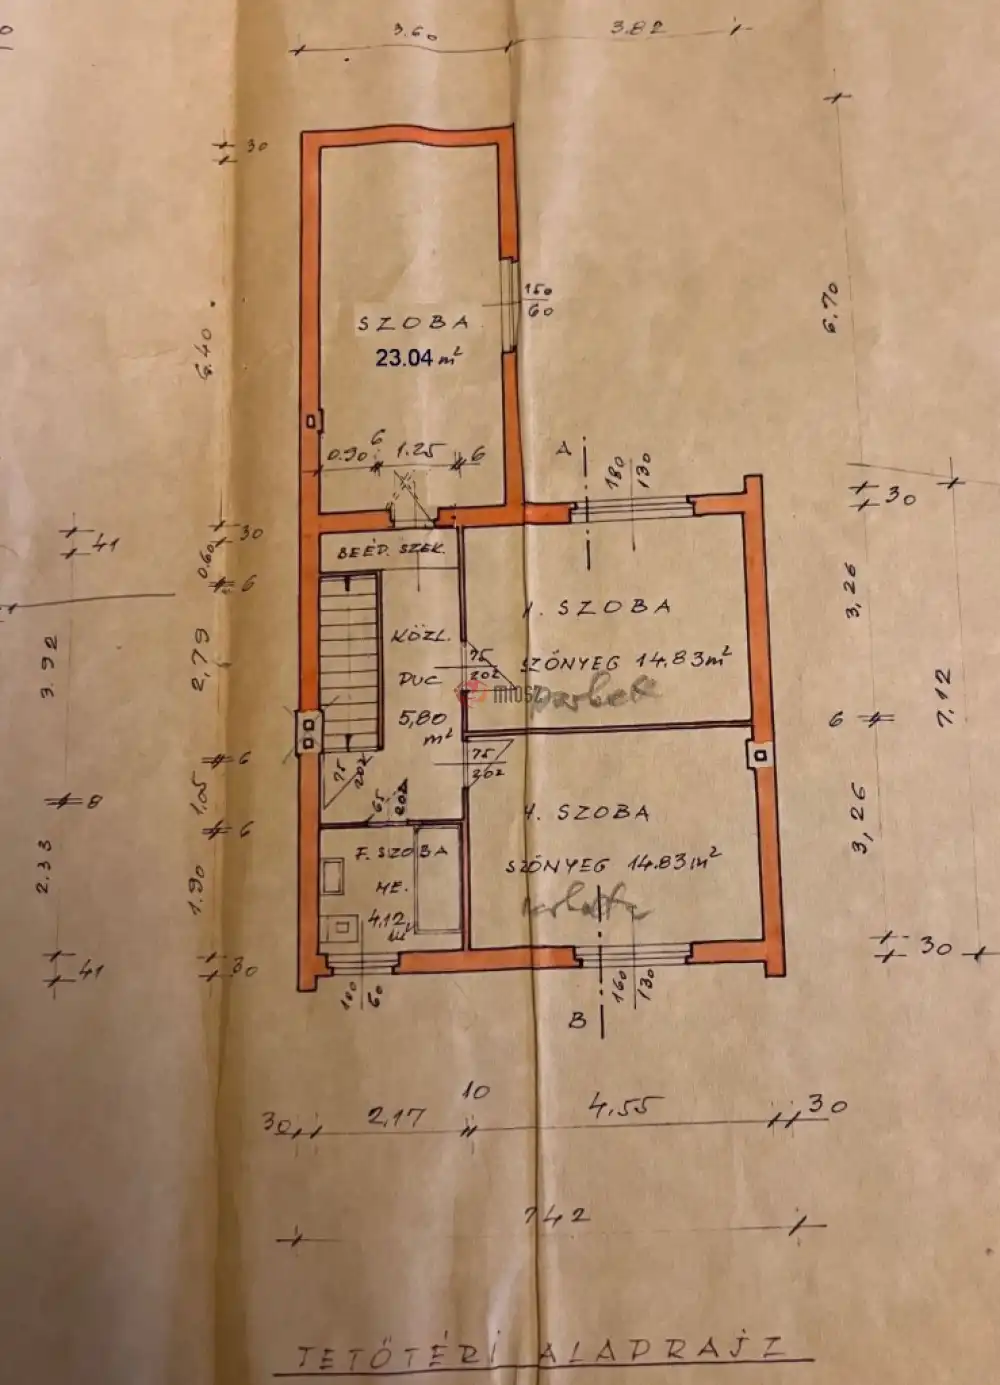 3.60
3.82
30
6.70
150
60
SZOBA
23.04 m²
6.40
0.90
6
1.25
6
A
180
130
30
41
30
0.60
6
BEÉP. SZEK.
3,26
1. SZOBA
KÖZL.
75
202
SZŐNYEG 14.83m²
DUC
5,80
m²
miosz
3.92
2,79
7,12
6
75
202
75
202
6
8
1.05
6
65
202
4. SZOBA
3,26
F. SZOBA
SZŐNYEG 14.83m²
ME.
4,12
m²
2.33
1.90
30
41
30
100
60
160
130
B
30
2,17
10
4,55
30
742
TETŐTÉRI ALAPRAJZ